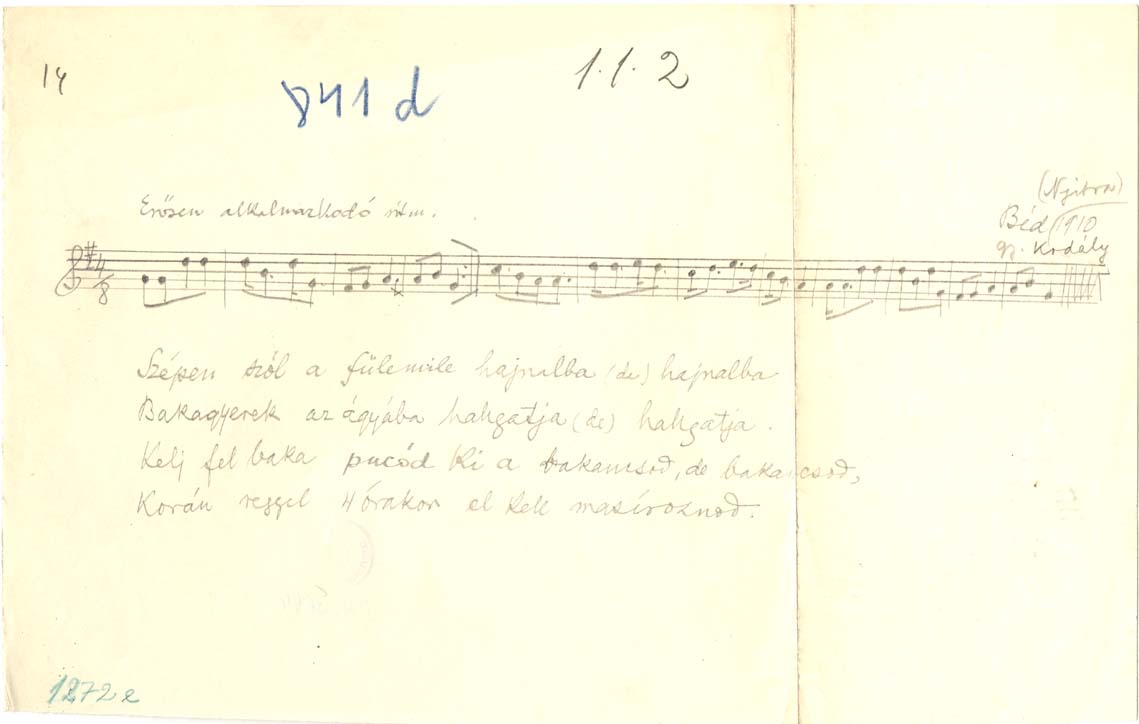 14
841 d
1.1.2
(Nyitra)
Béd 1910
gy. Kodály
Erősen alkalmazkodó ritm.
4
8
Szépen szól a fülemile hajnalba (de) hajnalba
Bakagyerek az ágyába halgatja (de) halgatja.
Kelj fel baka pucód ki a bakancsod, de bakancsod,
Korán reggel 4 órakor el kell masíroznod.
1272 e